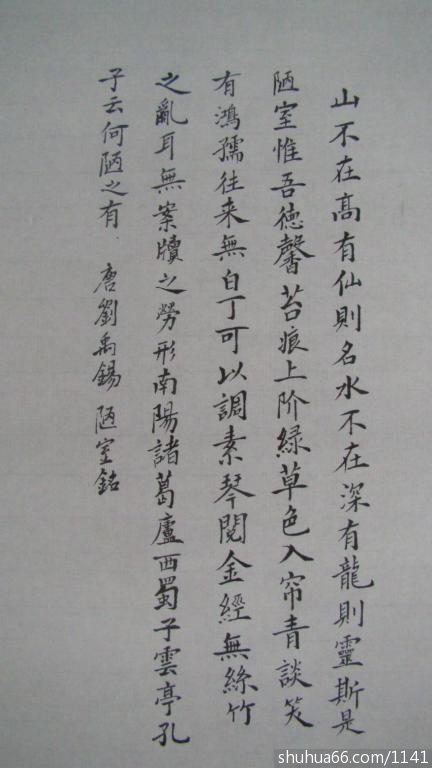 山不在高有仙則名水不在深有龍則靈斯是
陋室惟吾德馨苔痕上阶緑草色入帘青談笑
有鴻孺往来無白丁可以調素琴閱金經無絲竹
之亂耳無案牘之勞形南陽諸葛廬西蜀子雲亭孔
子云何陋之有 唐劉禹錫陋室銘
shuhua66.com/1141